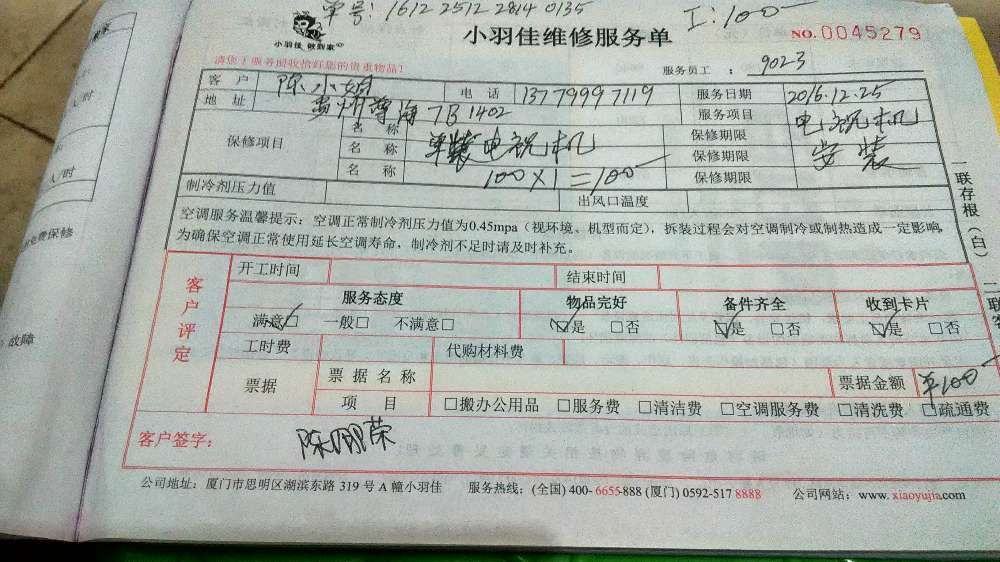 单号: 1612 2512 2814 0135
工:100-
小羽佳 做到家
小羽佳维修服务单
NO.0045279
请您!服务前收拾好您的贵重物品!
服务员工 : 9023
客 户 陈小姐 电 话 13779997119 服务日期 2016.12.25
地 址 7B 1402 服务项目 电视机
保修项目 名 称 保修期限 安装
名 称 单装电视机 保修期限
名 称 100×1=100- 保修期限
制冷剂压力值 出风口温度
空调服务温馨提示:空调正常制冷剂压力值为0.45mpa(视环境、机型而定),拆装过程会对空调制冷或制热造成一定影响,
为确保空调正常使用延长空调寿命,制冷剂不足时请及时补充。
客户评定
开工时间 结束时间
服务态度 物品完好 备件齐全 收到卡片
满意□ 一般□ 不满意□ □是 □否 □是 □否 □是 □否
工时费 代购材料费
票据 票据名称 票据金额 ¥100-
项 目 □搬办公用品 □服务费 □清洁费 □空调服务费 □清洗费 □疏通费
客户签字:
公司地址:厦门市思明区湖滨东路 319 号 A 幢小羽佳 服务热线:(全国) 400- 6655-888 (厦门) 0592-517 8888 公司网站:www. xiaoyujia.com
一联存根(白)
人/时
人/时
免费保修
故障